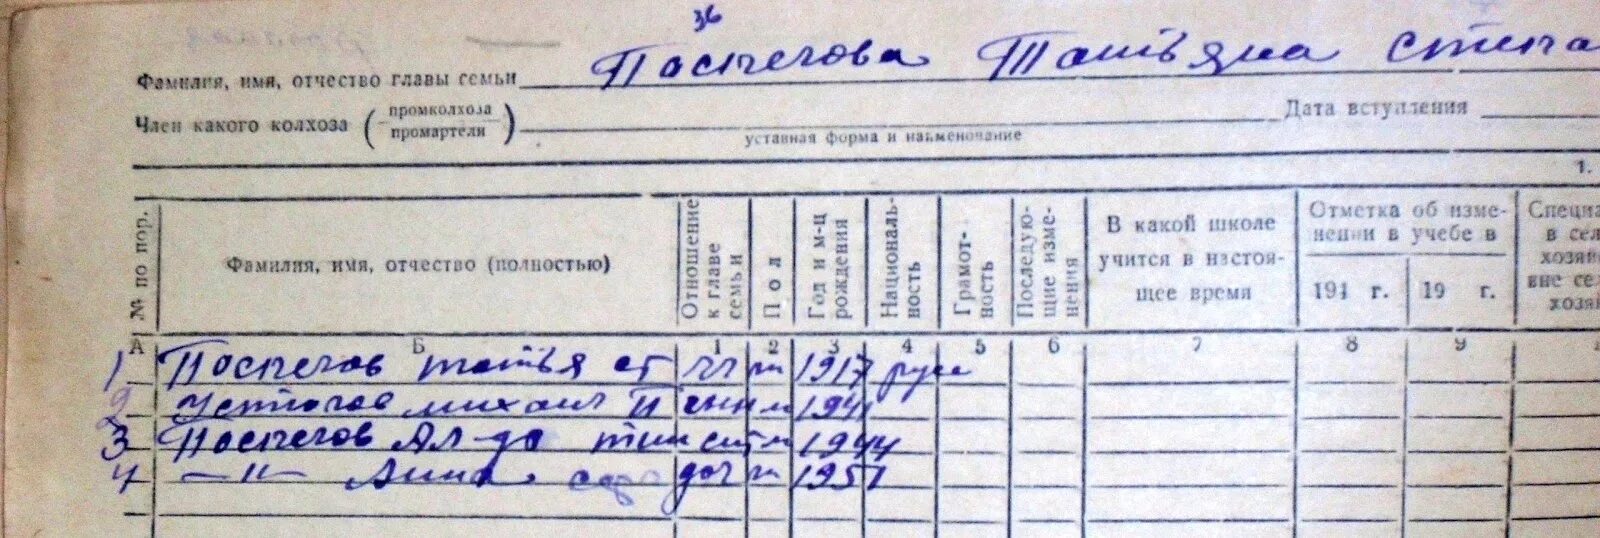 36
Фамилия, имя, отчество главы семьи Поспегова Татьяна Степа
Член какого колхоза (промколхоза промартели) Дата вступления
уставная форма и наименование
1.
№ по пор. Фамилия, имя, отчество (полностью) Отношение к главе семьи Пол Год и м-ц рождения Национальность Грамотность Последующие изменения В какой школе учится в настоящее время Отметка об изменении в учебе в 194 г. 19 г. Специа в сел хозяй вне сел хозя
А Б 1 2 3 4 5 6 7 8 9
1 Поспегов 1917 русс
2 михаил П 1941
3 Поспегов Ал-др 1944
4 —"— Анна доч 1951